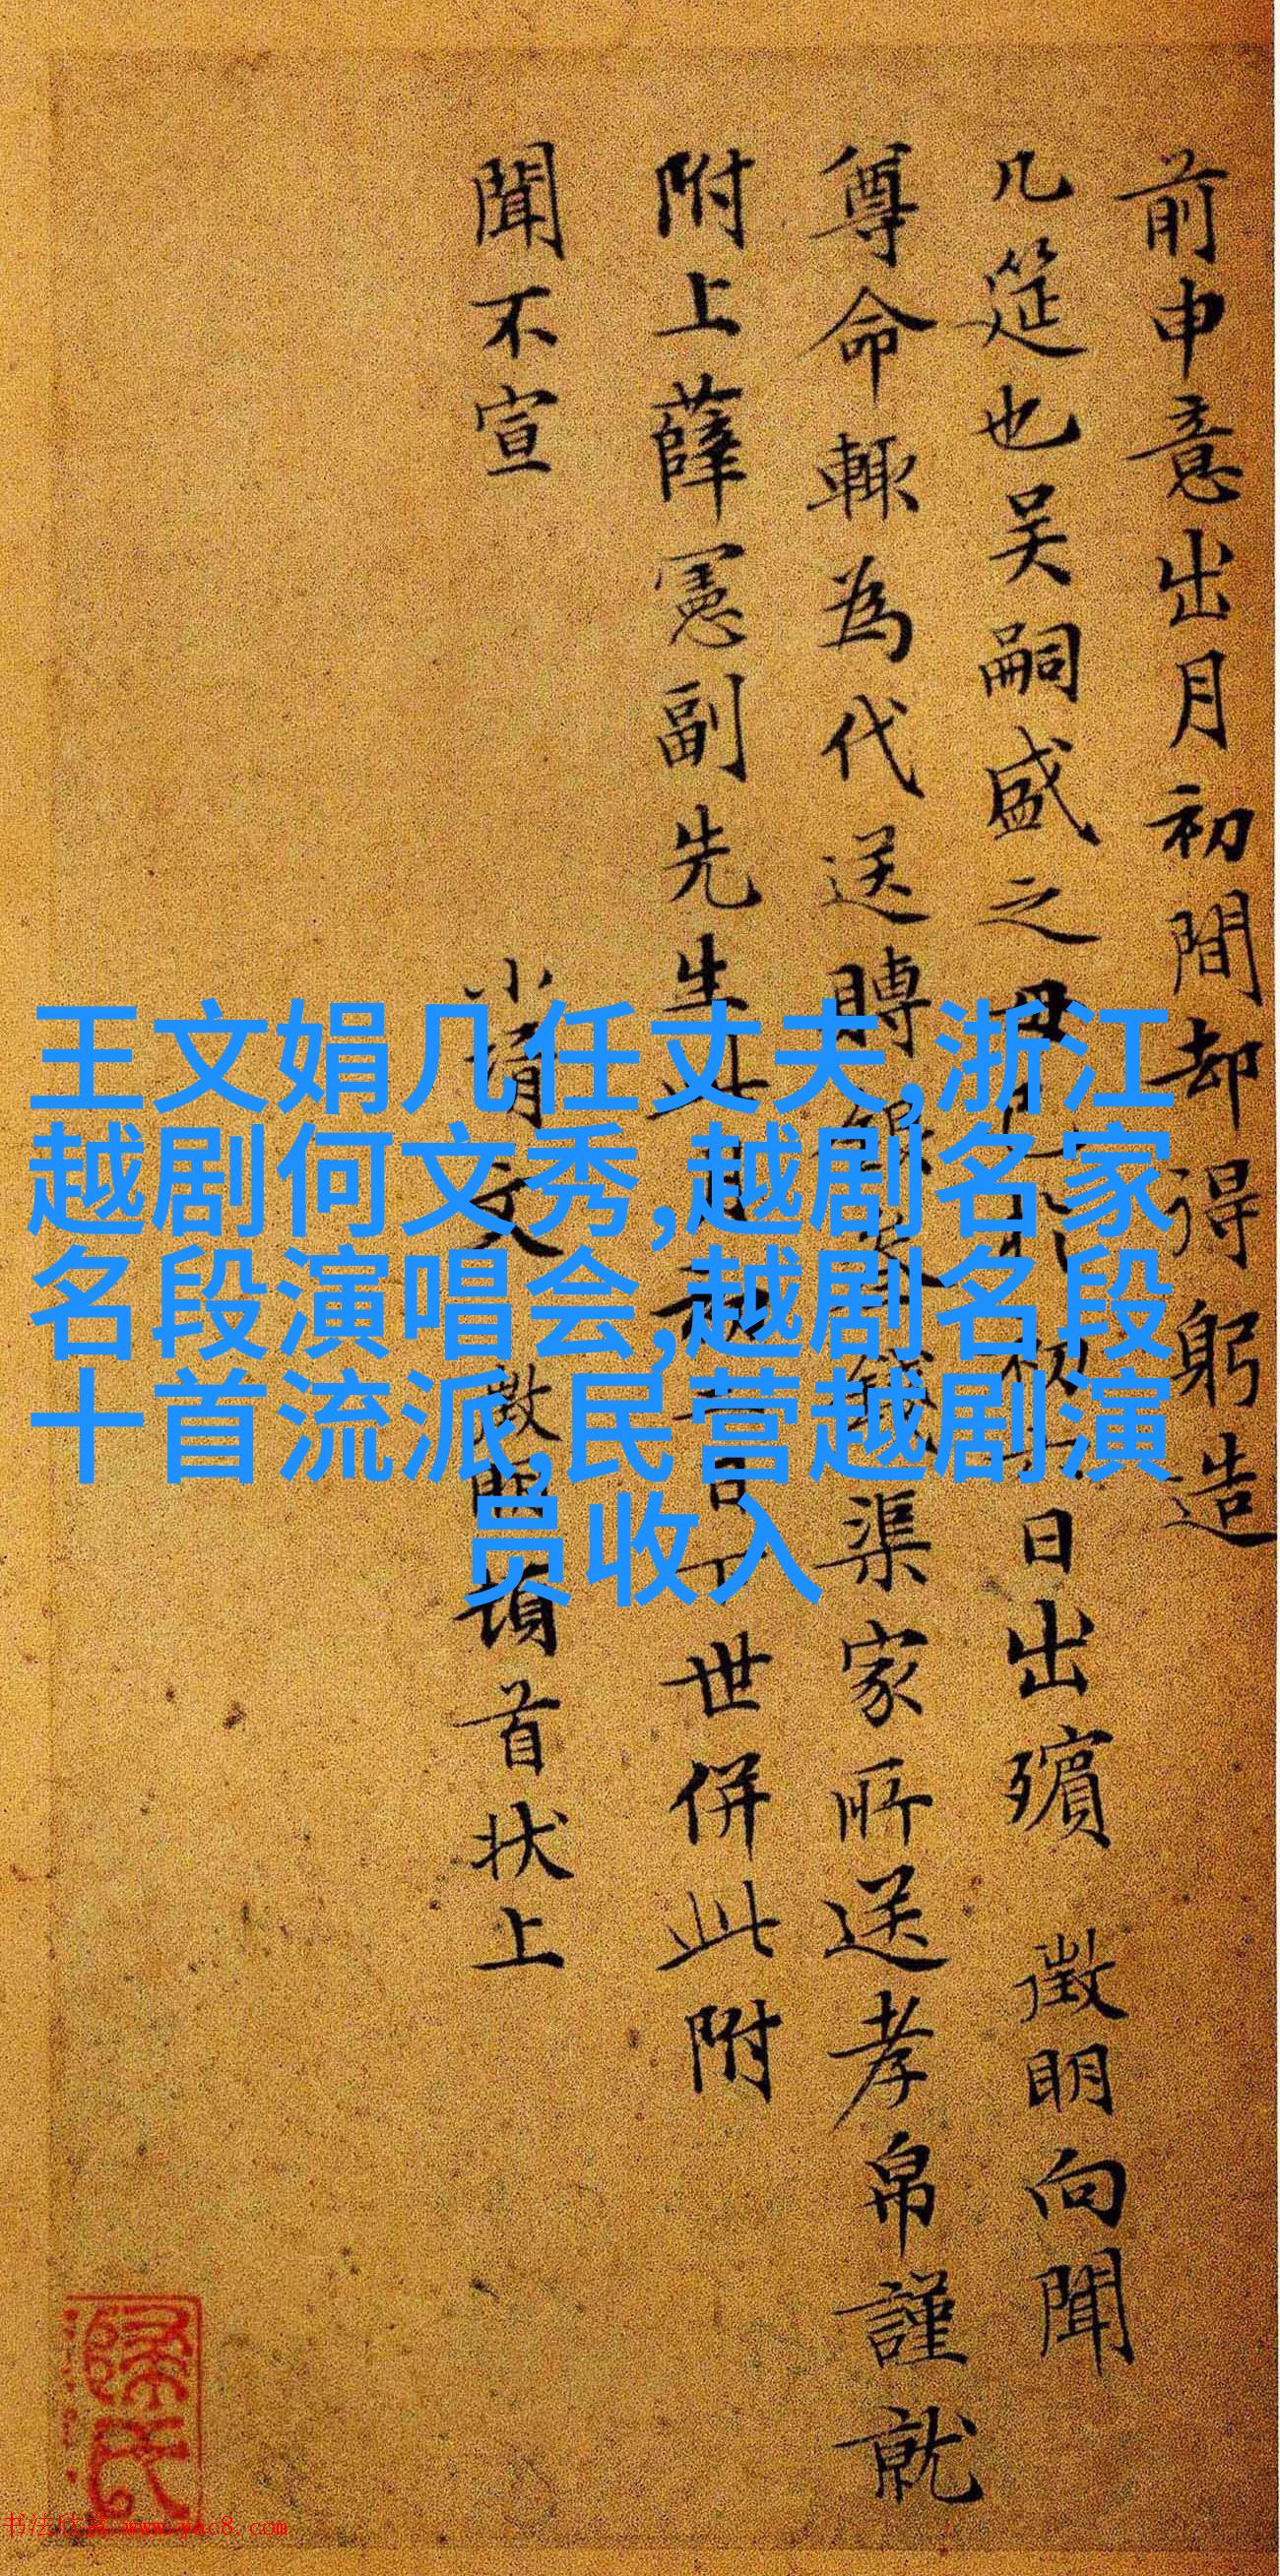 前申意出月初間却得躬造
几筵也吴嗣盛之母日出殯 徵明向聞
尊命輒為代送賻渠家所送孝帛謹就
附上薛憲副先生世併此附
聞不宣
文 徵明頓首狀上
王文娟几任丈夫,浙江
越剧何文秀,越剧名家
名段演唱会,越剧名段
十首流派,民营越剧演
员收入
书法欣赏 www.yac8.com